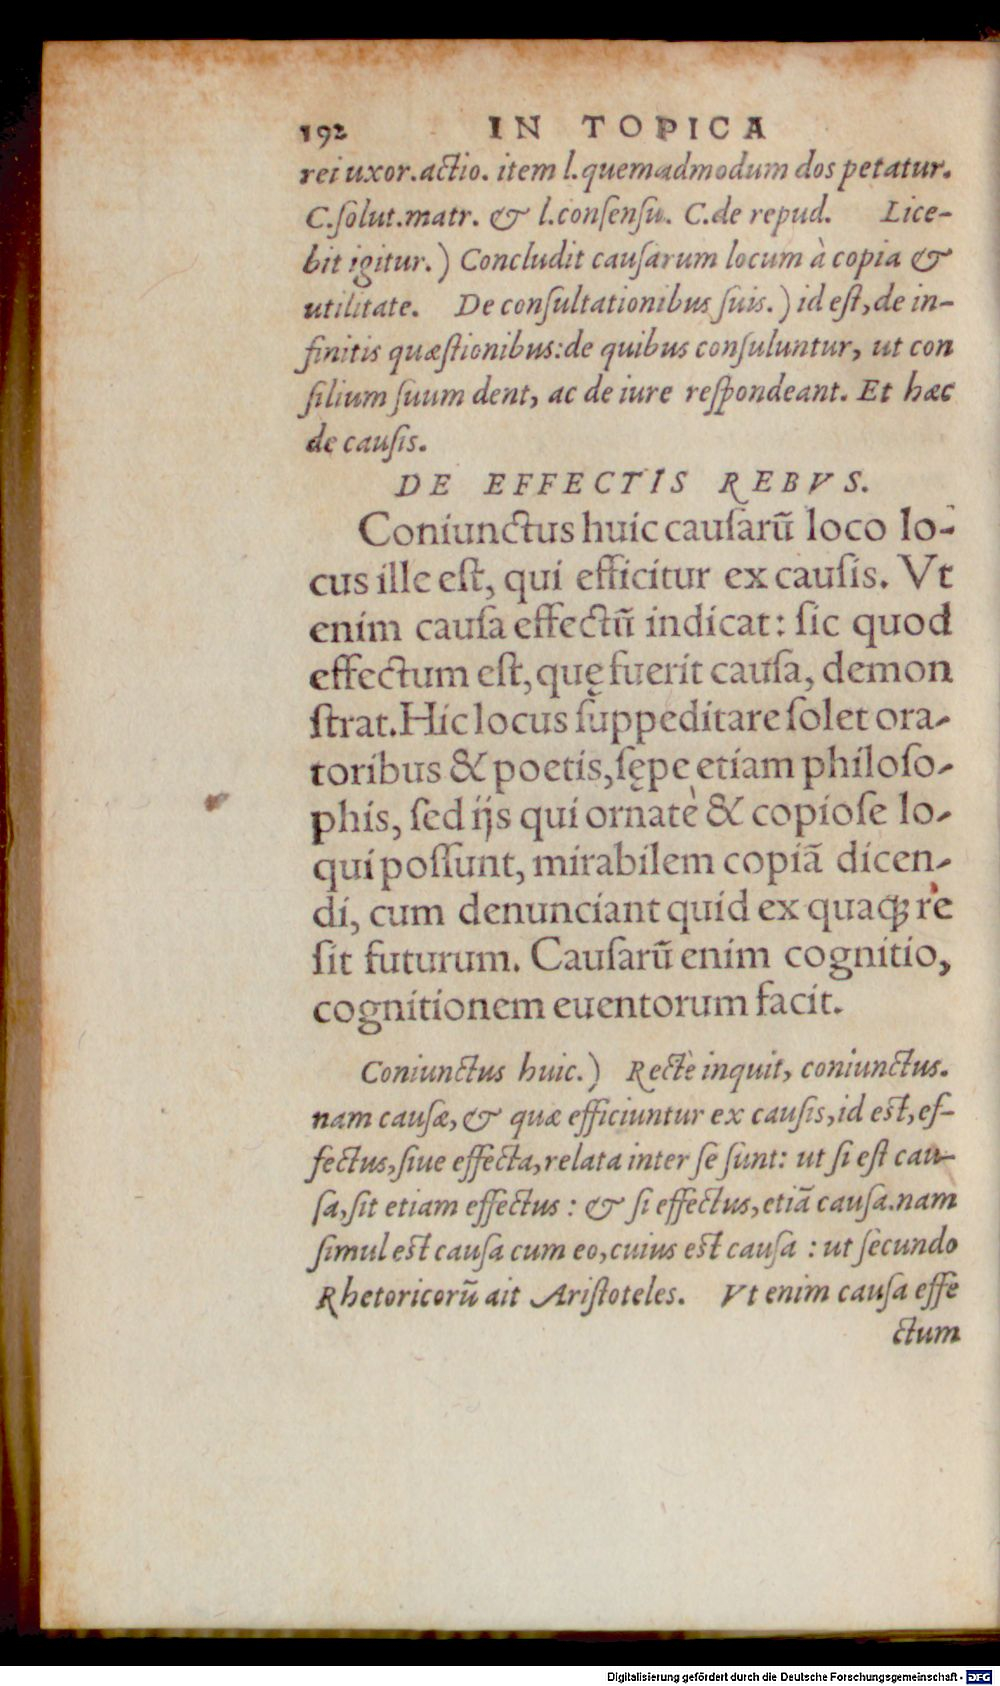 192 IN TOPICA
rei uxor. actio. item l. quemadmodum dos petatur.
C. ſolut. matr. & l. conſenſu. C. de repud. Lice-
bit igitur.) Concludit cauſarum locum à copia &
utilitate. De conſultationibus ſuis.) id eſt, de in-
finitis quæſtionibus: de quibus conſuluntur, ut con
ſilium ſuum dent, ac de iure reſpondeant. Et hæc
de cauſis.
DE EFFECTIS REBVS.
Coniunctus huic cauſarū loco lo-
cus ille eſt, qui efficitur ex cauſis. Vt
enim cauſa effectū indicat: ſic quod
effectum eſt, quę fuerit cauſa, demon
ſtrat. Hic locus ſuppeditare ſolet ora-
toribus & poetis, ſępe etiam philoſo-
phis, ſed ijs qui ornatè & copioſe lo-
qui poſſunt, mirabilem copiā dicen-
di, cum denunciant quid ex quaq; re
ſit futurum. Cauſarū enim cognitio,
cognitionem euentorum facit.
Coniunctus huic.) Rectè inquit, coniunctus.
nam cauſæ, & quæ efficiuntur ex cauſis, id eſt, ef-
fectus, ſiue effecta, relata inter ſe ſunt: ut ſi eſt cau-
ſa, ſit etiam effectus: & ſi effectus, etiā cauſa. nam
ſimul eſt cauſa cum eo, cuius eſt cauſa: ut ſecundo
Rhetoricorū ait Ariſtoteles. Vt enim cauſa effe
ctum
Digitalisierung gefördert durch die Deutsche Forschungsgemeinschaft - DFG